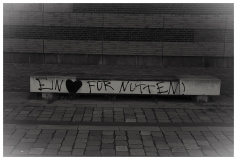 EIN ♥ FÜR NUTTEN!